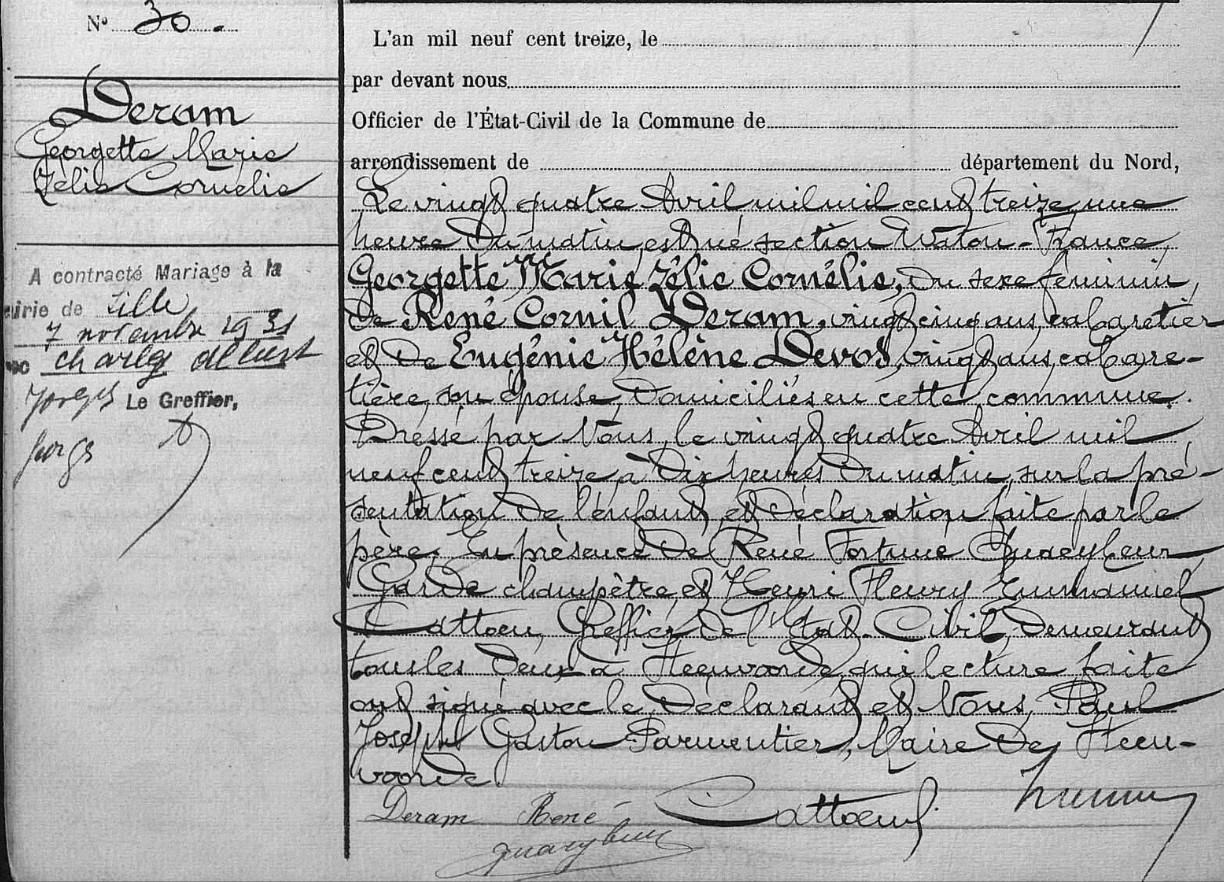 N° 30.
Deram
Georgette Marie
Zélie Cornélie
A contracté Mariage à la
airie de Lille
7 novembre 1931
ec Charles
Le Greffier,
L'an mil neuf cent treize, le
par devant nous
Officier de l'État-Civil de la Commune de
arrondissement de département du Nord,
Le vingt quatre Avril mil neuf cent treize, une
heure du matin, est né section Watou-France,
Georgette Marie Zélie Cornélie, du sexe féminin,
de René Cornil Deram, vingt cinq ans, cabaretier
et de Eugénie Hélène Devos, vingt ans, cabare-
tière, son épouse, domiciliés en cette commune.
Dressé par Nous, le vingt quatre Avril mil
neuf cent treize à dix heures du matin, sur la pré-
sentation de l'enfant et déclaration faite par le
père. En présence de René Fortuné Quaeybeur
Garde champêtre, et Henri Fleury Emmanuel
Cattoen, Greffier de l'Etat-Civil, demeurant
tous les deux à Steenvoorde, qui lecture faite
ont signé avec le Déclarant et Nous, Paul
Joseph Gaston Parmentier, Maire de Steen-
voorde.
Deram René Cattoen
Quaeybeur